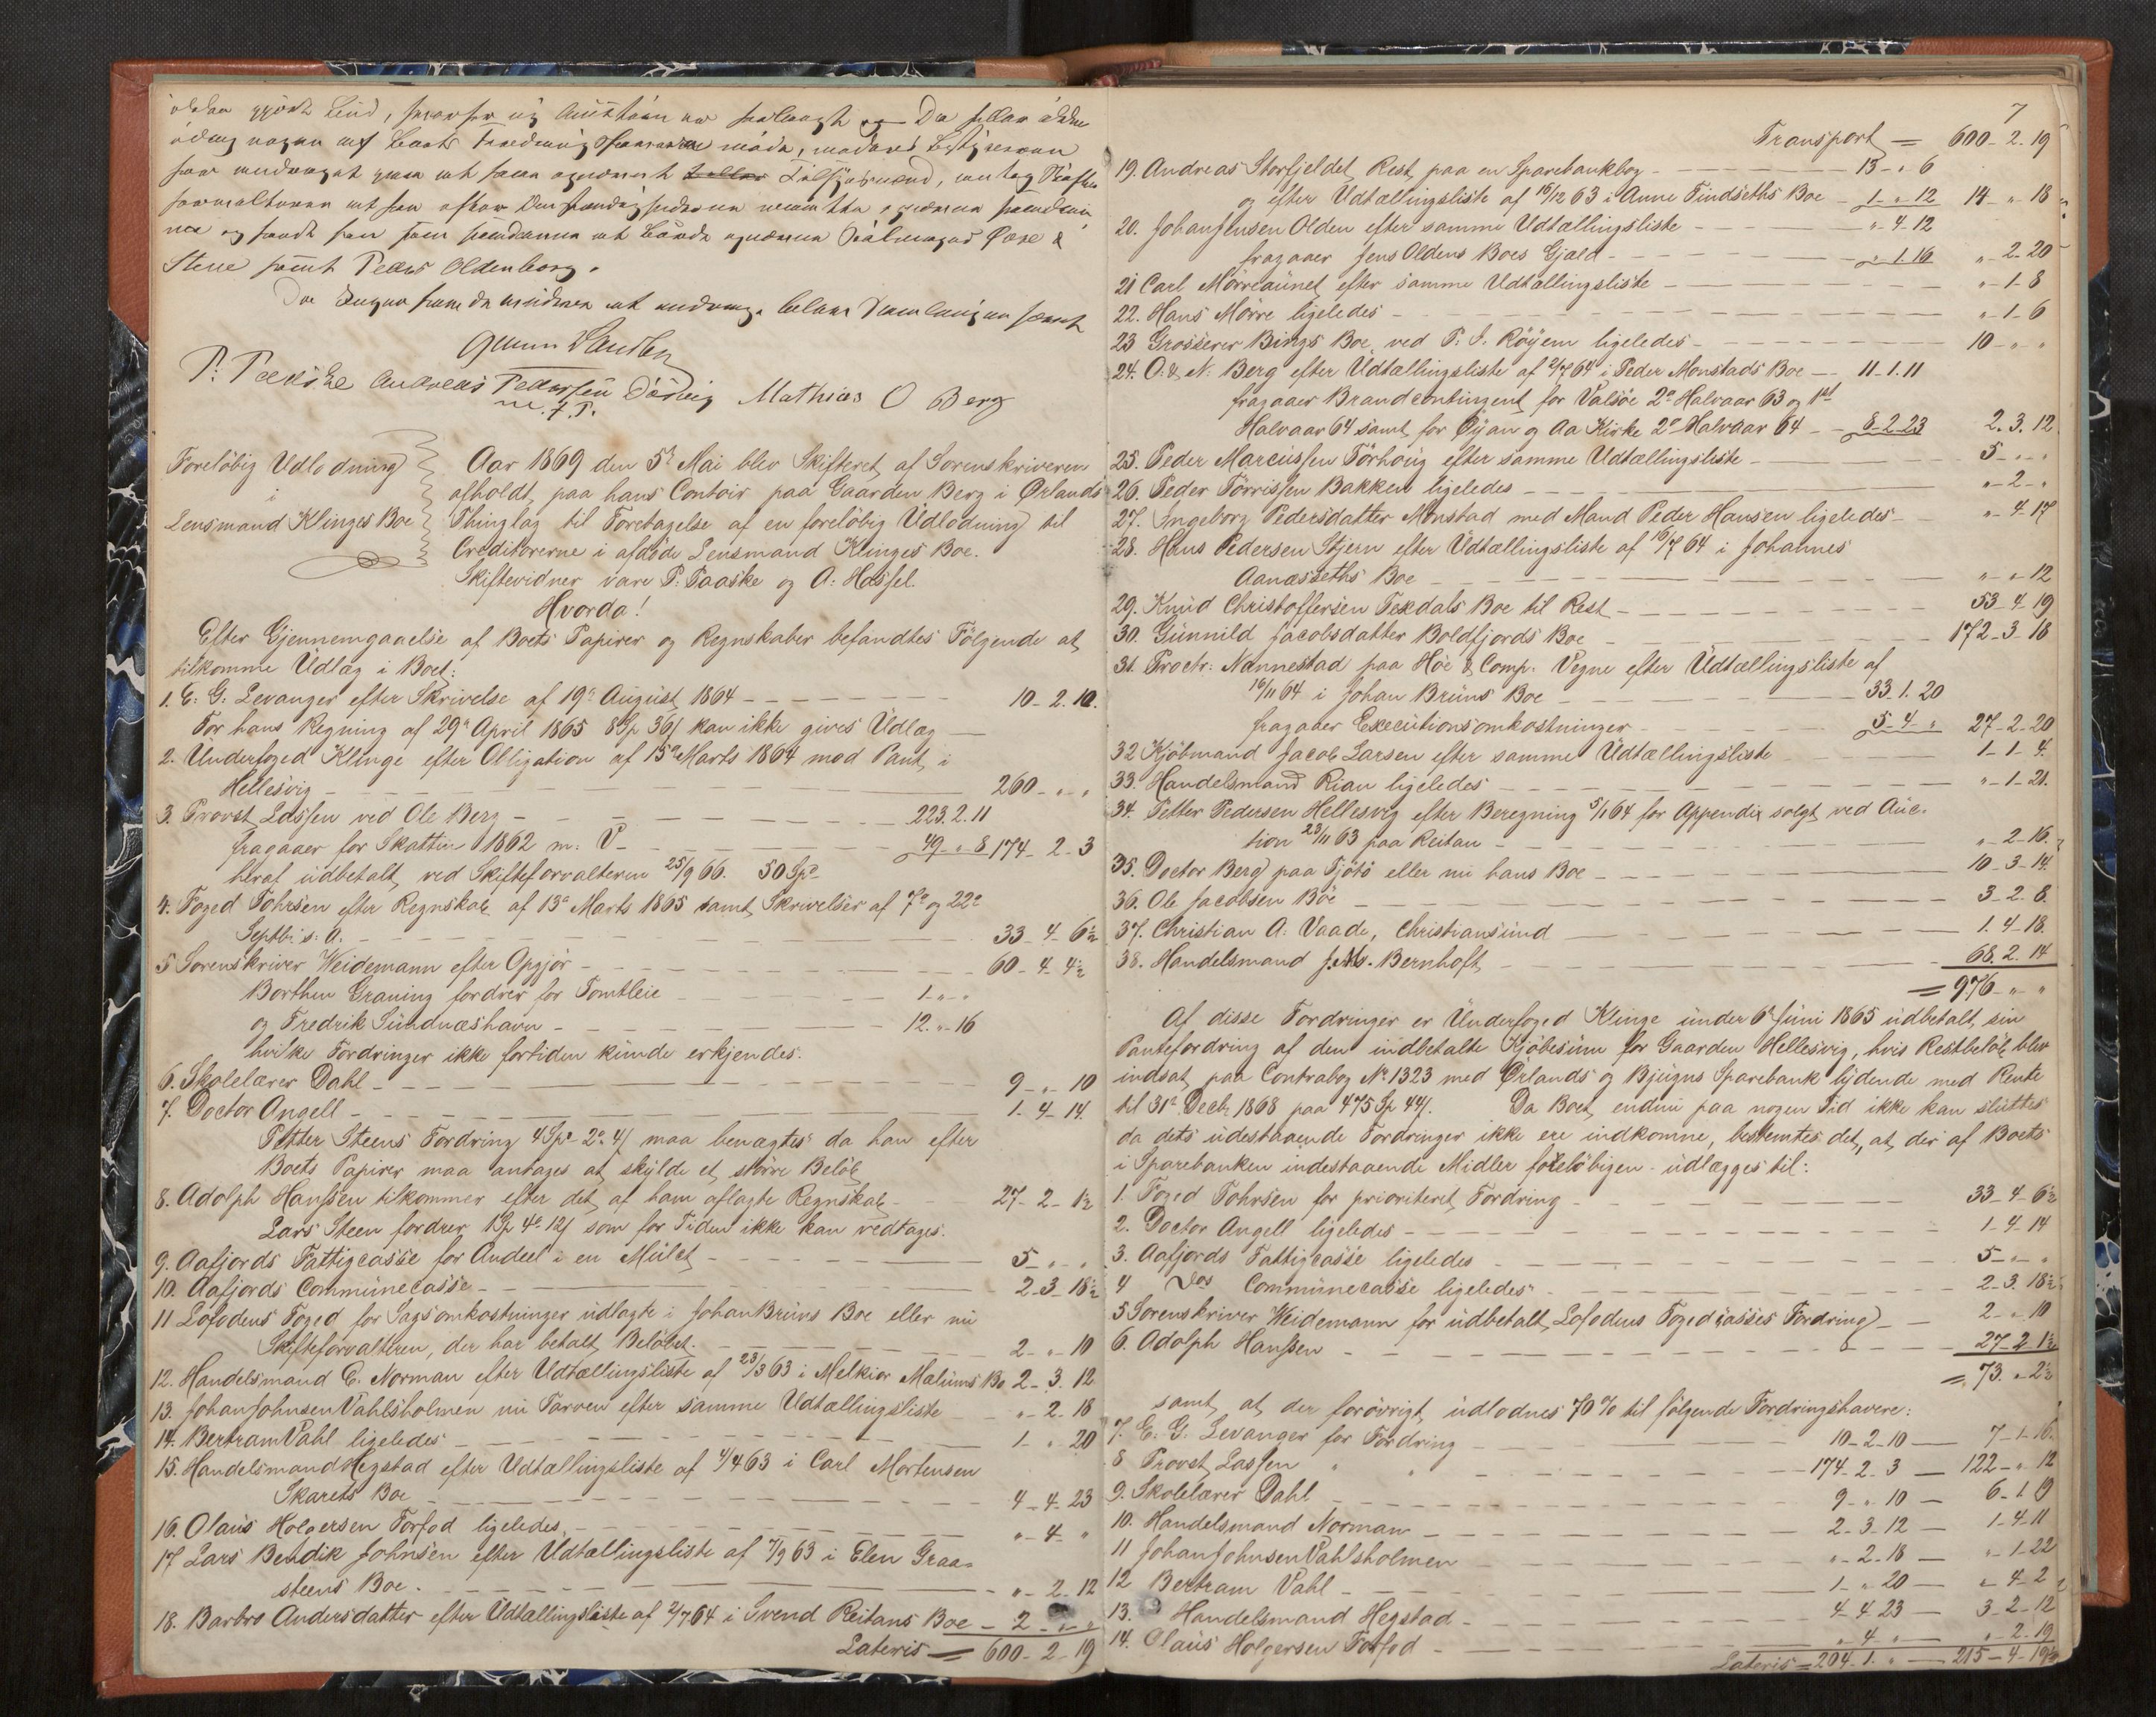 og Da
med
Stene samt Peder Oldenborg.
P. Paaske Andreas Pedersen Mathias O Berg
m. f. P.
Foreløbig Udlodning
i
Lensmand Klinges Boe
Aar 1869 den 5t Mai blev Skifteret af Sorenskriveren
afholdt paa hans Contoir paa Gaarden Berg i Ørlands
Thinglag til Foretagelse af en foreløbig Udlodning til
Creditorerne i afdøde Lensmand Klinges Boe.
Skiftevidner vare P. Paaske og A. Hassel.
Hvorda!
Efter Gjennemgaaelse af Boets Papirer og Regnskaber befandtes Følgende at
tilkomme Udlæg i Boet:
1. E. G. Levanger efter Skrivelse af 19de August 1864 - 10-2.10.
For hans Regning af 29de April 1865 8Sp 36/ kan ikke gives Udlæg
2. Underfoged Klinge efter Obligation af 15de Marts 1864 mod Pant i
Hellesvig - 260-„-„
3. Provst Lassen ved Ole Berg - 223.2.11
fragaaer for Skatten 1862 m: V - 49-„-8 174-2-3
heraf udbetalt ved Skifteforvalteren 25/9 66. 50 Spd
4. Foged Tøhrsen efter Regnskab af 13de Marts 1865 samt Skrivelser af 7de og 22de
Septbr s: A. - 33-4-6½
5 Sorenskriver Weidemann efter Opgjør - 60-4-4½
Borthen Graning fordrer for Tomtleie - 1-„-„
og Fredrik Sundnæshavn - 12.„-16
hvilke Fordringer ikke fortiden kunde erkjendes.
6. Skolelærer Dahl - 9-„-10
7. Doctor Angell - 1-4-14
Petter Steens Fordring 4 Spd 2o 4/ maa benægtes da han efter
Boets Papirer maa antages at skylde et større Beløb
8. Adolph Hanssen tilkommer efter det af ham aflagte Regnskab - 27-2-1½
Lars Steen fordrer 1Sp 4o 12/ som for Tiden ikke kan vedtages.
9. Aafjords Fattigcasse for Andeel i en Mulct - 5-„-„
10. Aafjords Communecasse - 2-3-18½
11 Lofodens Foged for Sagsomkostninger udlagte i Johan Bruns Boe eller nu
Skifteforvalteren, der har betalt Beløbet. - 2-„-10
12. Handelsmand E. Norman efter Udtællingsliste af 23/3 63 i Melkior Malums Bo 2-3.12
13. Johan Johnsen Vahlsholmen nu Tarven efter samme Udtællingsliste „-2.18
14. Bertram Vahl ligeledes - 1-„-20
15. Handelsmand Hegstad efter Udtællingsliste af 4/4 63 i Carl Mortensen
Skarets Boe - 4-4-23
16. Olaus Holgersen Forfod ligeledes. - „-4-„
17 Lars Bendik Johnsen efter Udtællingsliste af 7/9 63 i Elen Graa-
steens Boe. - „-2-12
18. Barbro Andersdatter efter Udtællingsliste af 2/7 64 i Svend Reitans Boe - 2-„-„
Lateris = 600-2-19
7
Transport = 600-2.19
19. Andreas Storfjeldet Rest paa en Sparebankbog - 13-„-6
og efter Udtællingsliste af 16/12 63 i Anne Findseths Boe - 1-„-12 14-„-18
20. Johan Jensen Olden efter samme Udtællingsliste - „-4-12
fragaaer Jens Oldens Boes Gjæld - „-1.16 „-2-20
21 Carl Mørreaunet efter samme Udtællingsliste - „-1-8
22. Hans Mørre ligeledes - „-1-6
23 Grosserer Bings Boe ved P. I. Røijem ligeledes - 10-„-„
24. O. & N. Berg efter Udtællingsliste af 2/7 64 i Peder Monstads Boe - 11-1.11
fragaaer Brandcontingent for Valsøe 2det Halvaar 63 og 1ste
Halvaar 64 samt for Øijan og Aa Kirke 2det Halvaar 64 - 8-2-23 2.3.12
25. Peder Marcussen Tørhoug efter samme Udtællingsliste - 5-„-„
26. Peder Tørrissen Bakken ligeledes - „-2-„
27. Ingeborg Pedersdatter Monstad med Mand Peder Hansen ligeledes - „-4-17
28. Hans Pedersen Stjern efter Udtællingsliste af 16/7 64 i Johannes
Aanæsseths Boe - „-„-12
29. Knud Christoffersen Texdals Boe til Rest - 53-4-19
30. Gunnild Jacobsdatter Boldfjords Boe - 172-3-18
31. Proctr: Nannestad paa Høe & Comp. Vegne efter Udtællingsliste af
16/11 64 i Johan Bruns Boe - 33.1.20
fragaaer Executionsomkostninger - 5-4-„ 27-2-20
32 Kjøbmand Jacob Larsen efter samme Udtællingsliste - 1-1-4.
33. Handelsmand Rian ligeledes - „-1-21.
34. Petter Pedersen Hellesvig efter Beregning 5/1 64 for Appendix solgt ved Auc-
tion 23/11 63 paa Reitan - „-2-16.
35. Doctor Berg paa Tjøtø eller nu hans Boe - 10-3-14.
36. Ole Jacobsen Bøe - 3-2.8.
37. Christian A. Vaade, Christiansund - 1.4-18.
38. Handelsmand J. M. Bernhoft - 68.2.14
= 976-„-„
Af disse Fordringer er Underfoged Klinge under 6te Juni 1865 udbetalt sin
Pantefordring af den indbetalte Kjøbesum for Gaarden Hellesvig, hvis Restbeløb blev
indsat paa Contrabog No 1323 med Ørlands og Bjugns Sparebank lydende med Rente
til 31de Decbr 1868 paa 475 Sp 44/. Da Boet endnu paa nogen Tid ikke kan sluttes
da dets udestaaende Fordringer ikke ere indkomne, bestemtes det, at der af Boets
i Sparebanken indestaaende Midler foreløbigen udlægges til:
1. Foged Tøhrsen for prioriteret Fordring - 33-4-6½
2. Doctor Angell ligeledes - 1-4-14
3. Aafjords Fattigcasse ligeledes - 5-„-„
4 Dos Communecasse ligeledes - 2-3.18½
5 Sorenskriver Weidemann for udbetalt Lofodens Fogedcasses Fordring - 2-„-10
6. Adolph Hanssen - 27-2-1½
= 73.„-2½
samt at der forøvrigt udlodnes 70% til følgende Fordringshavere:
7. E. G. Levanger for Fordring - 10-2-10 - 7-1-16.
8 Provst Lassen „ „ - 174-2-3 - 122-„-12
9. Skolelærer Dahl - 9-„-10 - 6-1-9
10. Handelsmand Norman - 2-3-12 - 1-4-11
11 Johan Johnsen Vahlsholmen - „-2-18 - „-1-22
12 Bertram Vahl - 1-„-20 - „-4-2
13. Handelsmand Hegstad - 4-4-23 - 3-2-12
14. Olaus Holgersen Forfod - „-4-„ - „-2.19
Lateris = 204-1.„ - 215-4-19½